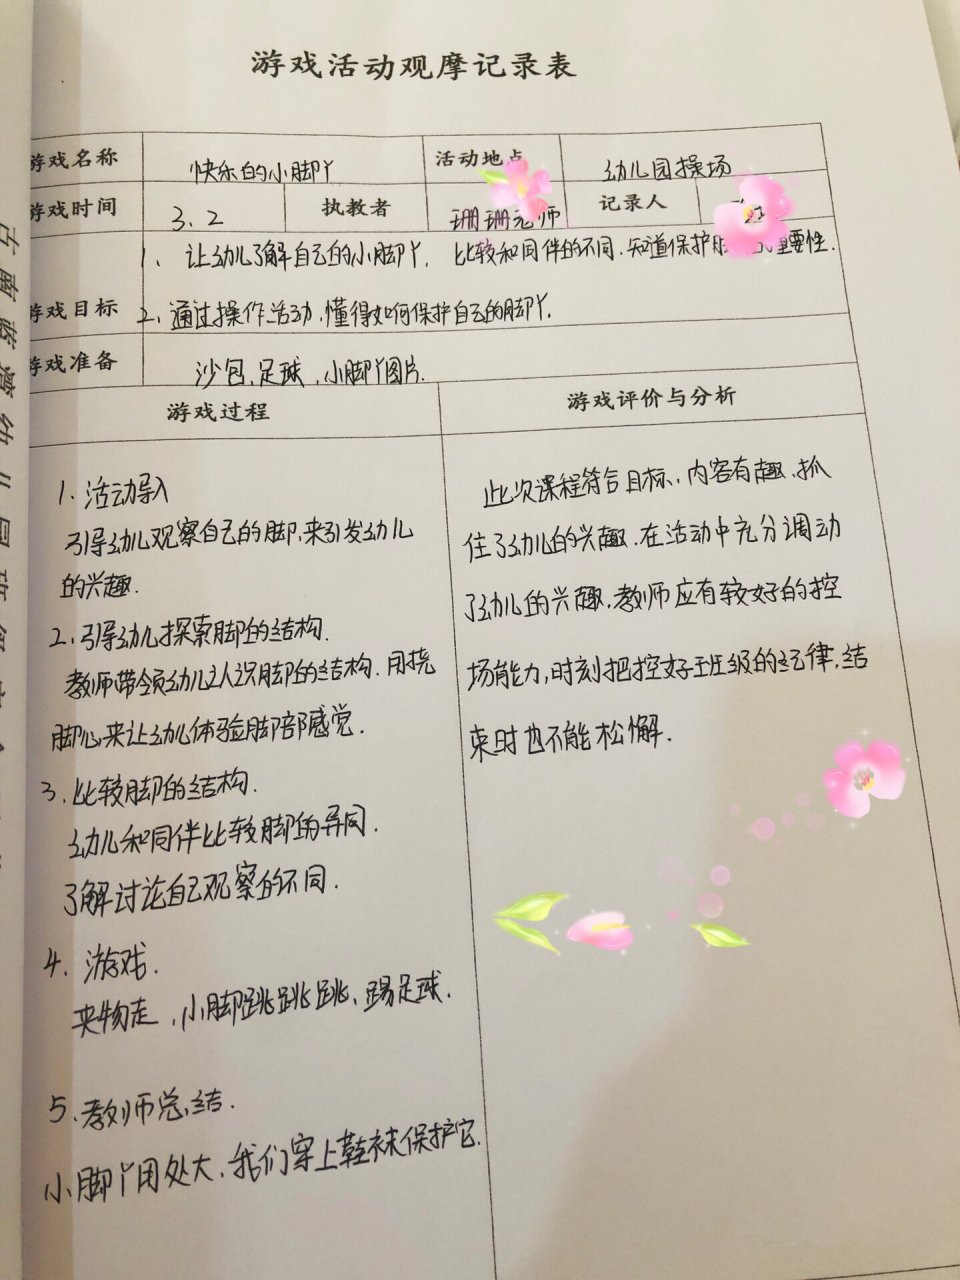 游戏活动观摩记录表
游戏名称 快乐的小脚丫 活动地点 幼儿园操场
游戏时间 3、2 执教者 珊珊老师 记录人
1、让幼儿了解自己的小脚丫，比较和同伴的不同，知道保护 重要性.
游戏目标 2、通过操作活动，懂得如何保护自己的脚丫.
游戏准备 沙包、足球、小脚丫图片.
游戏过程 游戏评价与分析
1、活动导入
引导幼儿观察自己的脚，来引发幼儿
的兴趣.
2、引导幼儿探索脚的结构.
教师带领幼儿认识脚的结构.用挠
脚心来让幼儿体验脚部感觉.
3、比较脚的结构.
幼儿和同伴比较脚的异同.
了解讨论自己观察的不同.
4、游戏.
夹物走，小脚跳跳跳、踢足球.
5、教师总结.
小脚丫用处大，我们穿上鞋袜保护它.
此次课程符合目标，内容有趣、抓
住了幼儿的兴趣.在活动中充分调动
了幼儿的兴趣.教师应有较好的控
场能力，时刻把控好班级的纪律，结
束时也不能松懈.